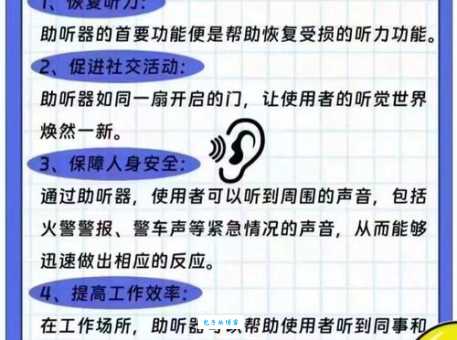 1、恢复听力：
助听器的首要功能便是帮助恢复受损的听力功能。
2、促进社交活动：
助听器如同一扇开启的门，让使用者的听觉世界
焕然一新。
3、保障人身安全：
通过助听器，使用者可以听到周围的声音，包括
火警警报、警车声等紧急情况的声音，从而能够
迅速做出相应的反应。
4、提高工作效率：
在工作场所，助听器可以帮助使用者听到同事和